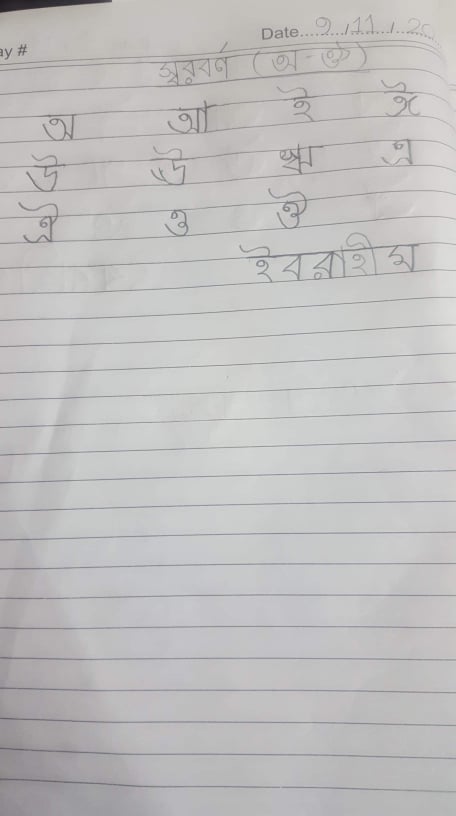 ay #
Date....9../11../..20
স্বরবর্ণ (অ-ঔ)
অ আ ই ঈ
উ ঊ ঋ এ
ঐ ও ঔ
ইবরাহীম